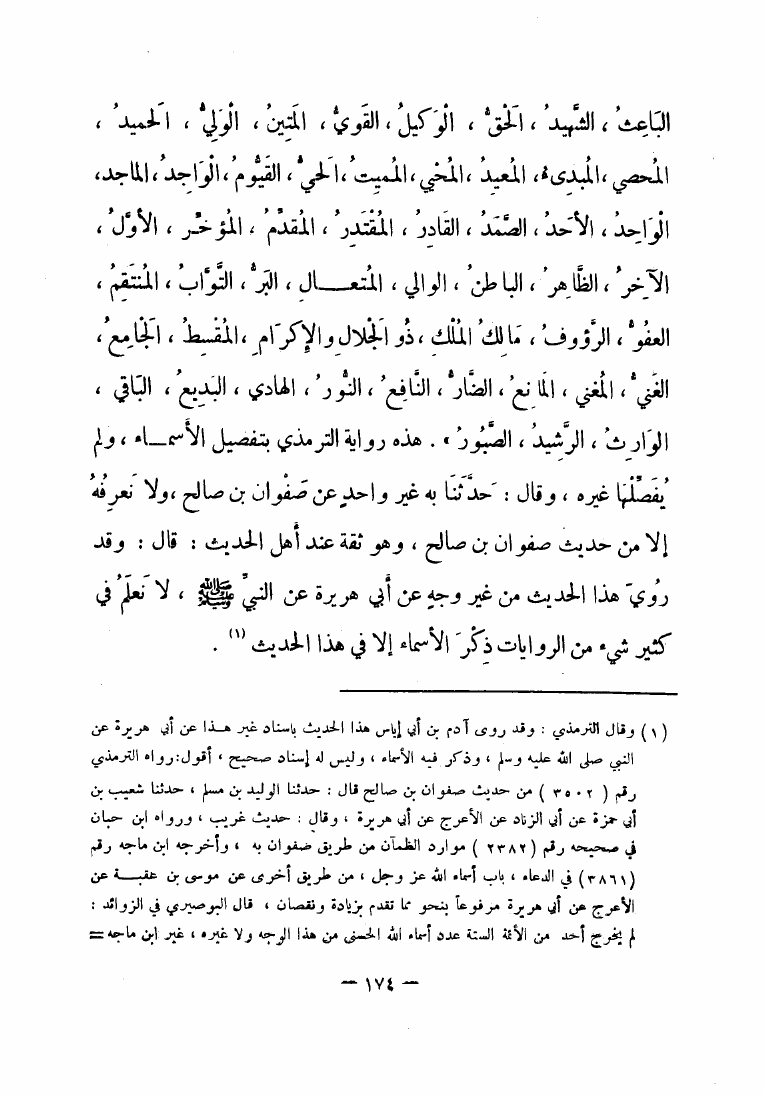 البَاعِثُ ، الشَّهِيدُ ، الحَقُّ ، الْوَكِيلُ ، القَوِيُّ ، المَتِينُ ، الْوَلِيُّ ، الحَميدُ ،
المُحصي ، المُبدىءُ ، المُعيدُ ، المُحْيي ، المُميتُ ، الحَيُّ ، القَيُّومُ ، الْوَاجِدُ ، الماجد ،
الْوَاحِدُ ، الأحَدُ ، الصَّمَدُ ، القَادِرُ ، المُقْتَدِرُ ، المُقَدِّمُ ، المُؤخِّر ، الأوَّلُ ،
الآخِرُ ، الظَّاهِرُ ، الباطنُ ، الوالي ، المُتعــال ، البَرُّ ، التَّوَّابُ ، المُنتَقِمُ ،
العفُوُّ ، الرَّؤوفُ ، مَالِكُ المُلْكِ ، ذُو الجَلالِ والإكرَامِ ، المُقْسِطُ ، الجَامِعُ ،
الغَنيُّ ، المُغني ، المَانِعُ ، الضَّارُّ ، النَّافِعُ ، النُّورُ ، الهادي ، البَدِيعُ ، البَاقي ،
الوَارِثُ ، الرَّشِيدُ ، الصَّبُورُ » . هذه رواية الترمذي بتفصيل الأسمـاء ، ولم
يُفَصِّلْها غيره ، وقال : حَدَّثَنَا به غير واحدٍ عن صَفْوانَ بن صالح ، ولا نَعرِفُهُ
إلا من حديث صفوان بن صالح ، وهو ثقة عند أهل الحديث : قال : وقد
رُويَ هذا الحديث من غير وجهٍ عن أبي هريرة عن النبيِّ ﷺ ، لا نَعلَمُ في
كثير شيء من الروايات ذِكْرَ الأسماء إلا في هذا الحديث (١) .
(١) وقال الترمذي : وقد روى آدم بن أبي إياس هذا الحديث بإسناد غير هــذا عن أبي هريرة عن
النبي صلى الله عليه وسلم ، وذكر فيه الأسماء ، وليس له إسناد صحيح ، أقول : رواه الترمذي
رقم ( ٣٥٠٢ ) من حديث صفوان بن صالح قال : حدثنا الوليد بن مسلم ، حدثنا شعيب بن
أبي حمزة عن أبي الزناد عن الأعرج عن أبي هريرة ، وقال : حديث غريب ، ورواه ابن حبان
في صحيحه رقم ( ٢٣٨٢ ) موارد الظمآن من طريق صفوان به ، وأخرجه ابن ماجه رقم
(٣٨٦١) في الدعاء ، باب أسماء الله عز وجل ، من طريق أخرى عن موسى بن عقبــة عن
الأعرج عن أبي هريرة مرفوعاً بنحو مما تقدم بزيادة ونقصان ، قال البوصيري في الزوائد :
لم يخرج أحد من الأئمة الستة عدد أسماء الله الحسنى من هذا الوجه ولا غيره ، غير ابن ماجه =
– ١٧٤ –